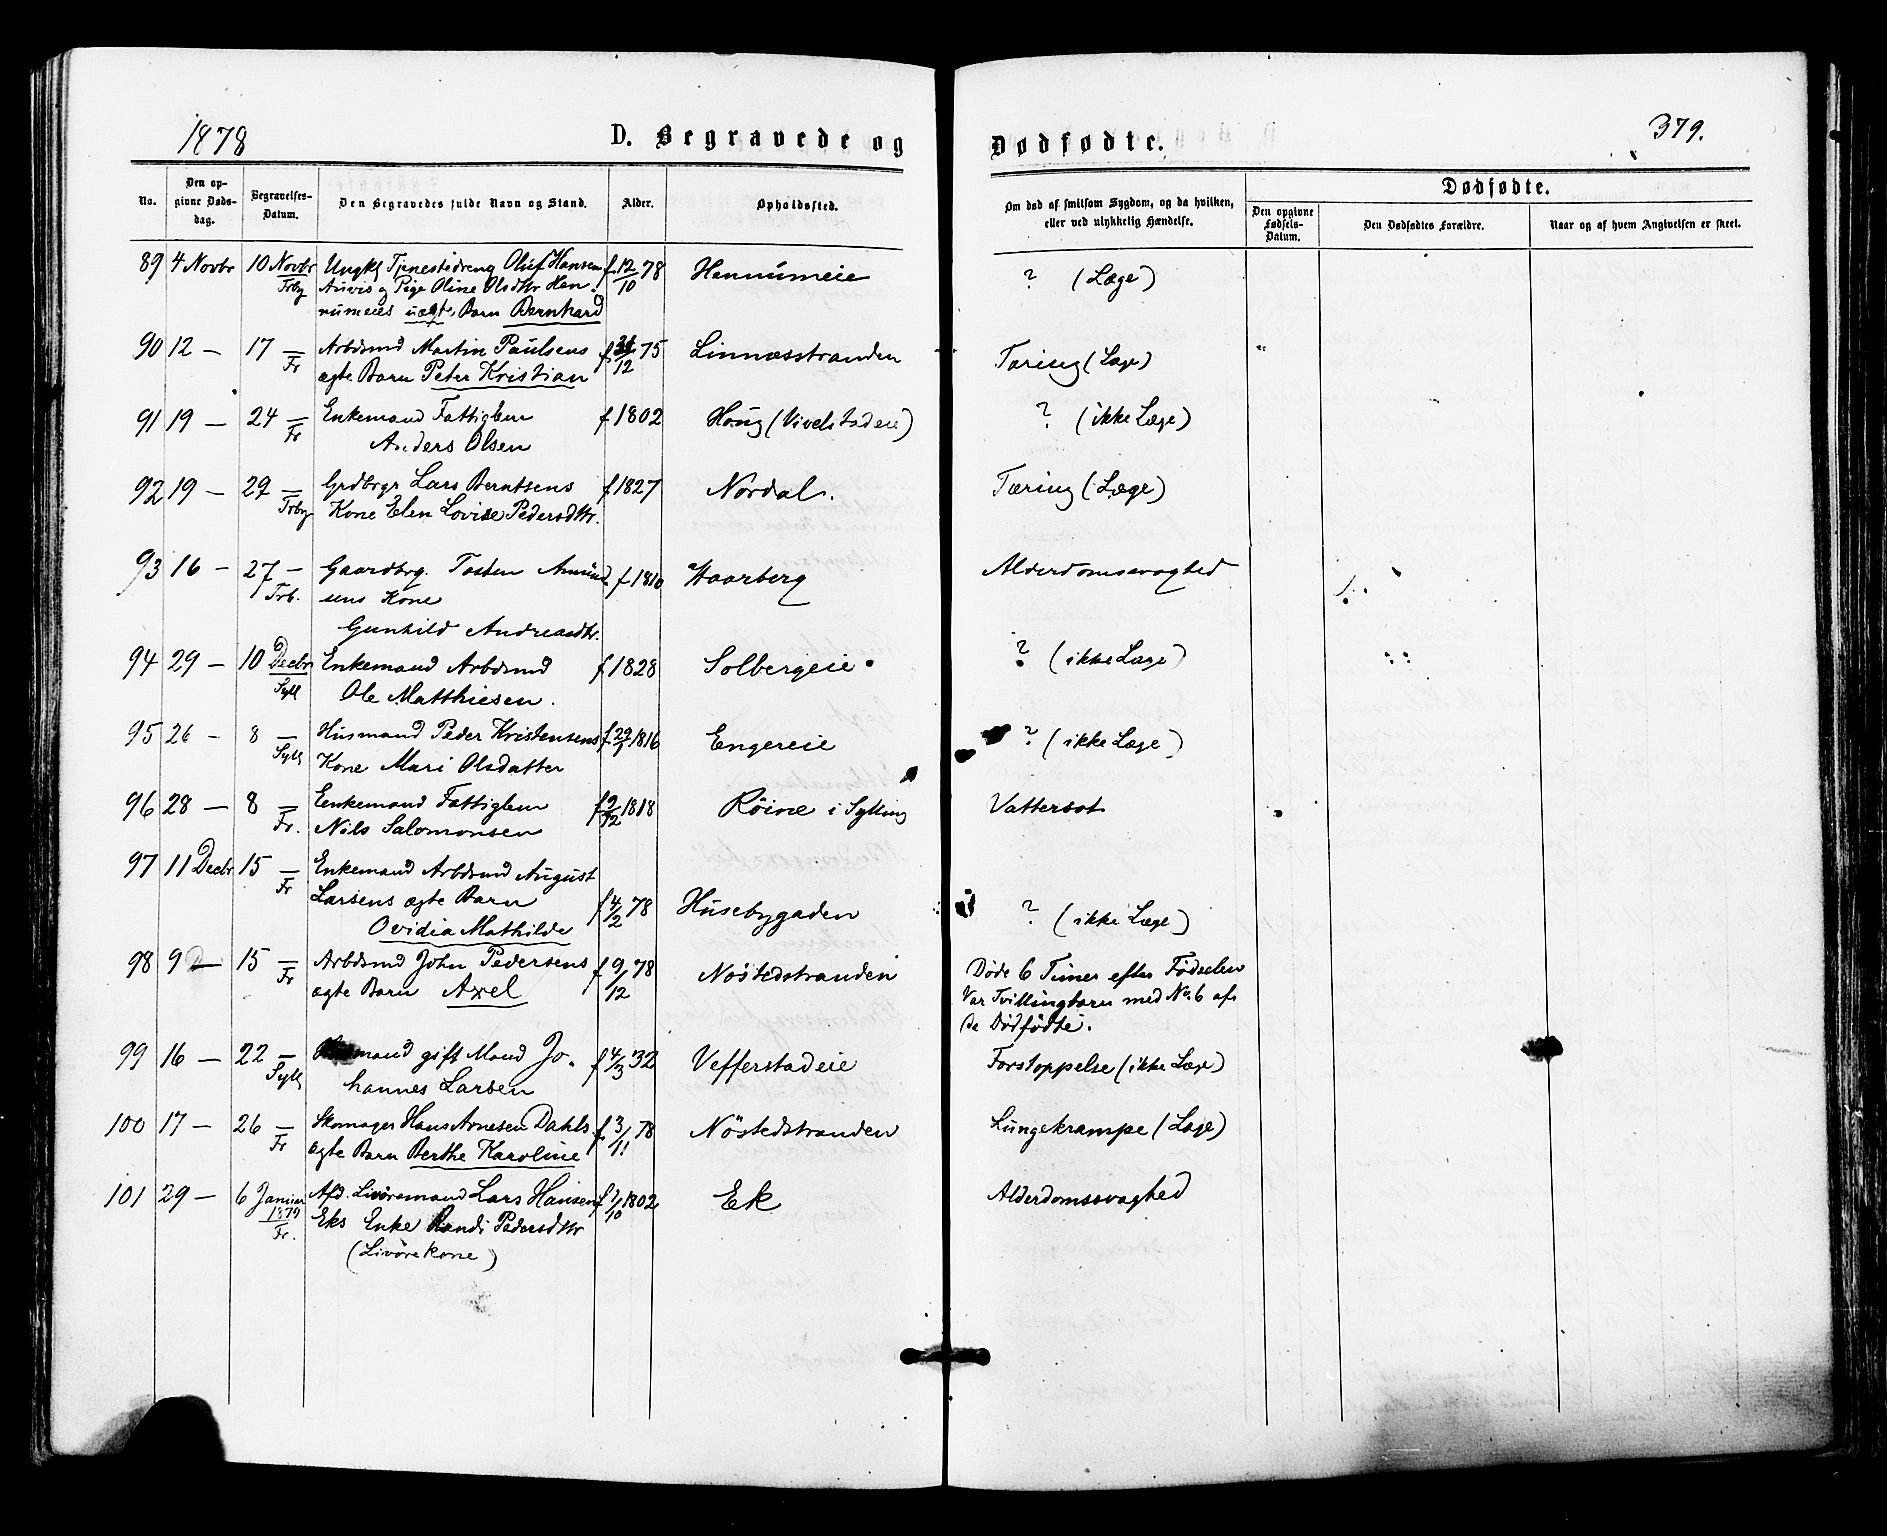 1878
D. Begravede og
Dødfødte.
379.
No.
Den opgivne Dødsdag.
Begravelses-Datum.
Den Begravedes fulde Navn og Stand.
Alder.
Opholdssted.
Om død af smitsom Sygdom, og da hvilken, eller ved ulykkelig Hændelse.
Dødfødte.
Den opgivne Fødsels-Datum.
Den Dødfødtes Forældre.
Naar og af hvem Angivelsen er skeet.
89 4 Novbr 10 Novbr Ungkl Tjenestedreng Oluf Hansen f 12/10 78 Hennumeie ? (Læge)
Trby Auvis og Pige Oline Olsdttr Hen-
numeies uægte Barn Bernhard
90 12 — 17 — Arbdsmd Martin Paulsens f /12 75 Linnæsstranden Tæring (Læge)
Fr ægte Barn Peter Kristian
91 19 — 24 — Enkemand Fattiglem f 1802 Houg (Vivelstadeie) ? (ikke Læge)
Fr Anders Olsen
92 19 — 29 — Grdbrgr Lars Berntsens f 1827 Nordal. Tæring (Læge)
Trby Kone Elen Lovise Pedersdttr.
93 16 — 27 — Gaardbrg. Tosten Amund f 1810 Haarberg Alderdomssvaghed
Trb. sens Kone
Gunhild Andreasdtr.
94 29 — 10 Decbr Enkemand Arbdsmd f 1828 Solbergeie ? (ikke Læge)
Syll Ole Matthiesen.
95 26 - 8 — Husmand Peder Kristensens f 29/1 1816 Engereie ? (ikke Læge)
Syll Kone Mari Olsdatter
96 28 — 8 — Eenkemand Fattiglem f 9/12 1818 Röine i Sylling Vattersot
Fr. Nils Salomonsen
97 11 Decbr 15 — Enkemand Arbdsmd August
Fr Larsens ægte Barn f 4/2 78 Husebygaden ? (ikke Læge)
Ovidia Mathilde
98 9 — 15 — Arbdsmd John Pedersens f 9/12 78 Nöstedstranden Døde 6 Timer efter Fødselen
Fr ægte Barn Axel Var Tvillingbarn med No 6 af
de Dødfödte.
99 16 — 22 — mand gift Mand Jo- f 4/3 32 Vefferstadeie Forstoppelse (ikke Læge)
Syll hannes Larsen
100 17 — 26 — Skomager Hans Arnesen Dahls f 3/11 78 Nöstedstranden Lungekrampe (Læge)
Fr ægte Barn Berthe Karoline
101 29 — 6 Januar Afd. Livöremand Lars Hansen f /10 1802 Ek Alderdomssvaghed
1879 Eks Enke Randi Pedersdttr
Fr. (Livörekone)